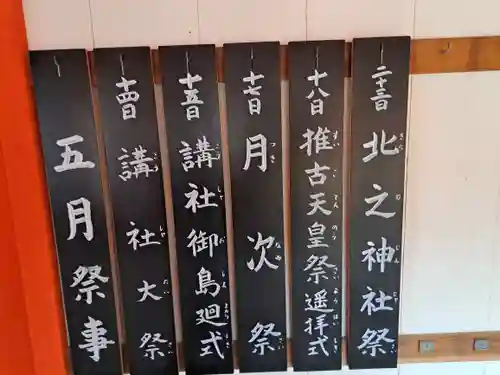 五月祭事
十四日 講社大祭
十五日 講社御島廻式
十七日 月次祭
十八日 推古天皇祭遙拝式
二十三日 北之神社祭